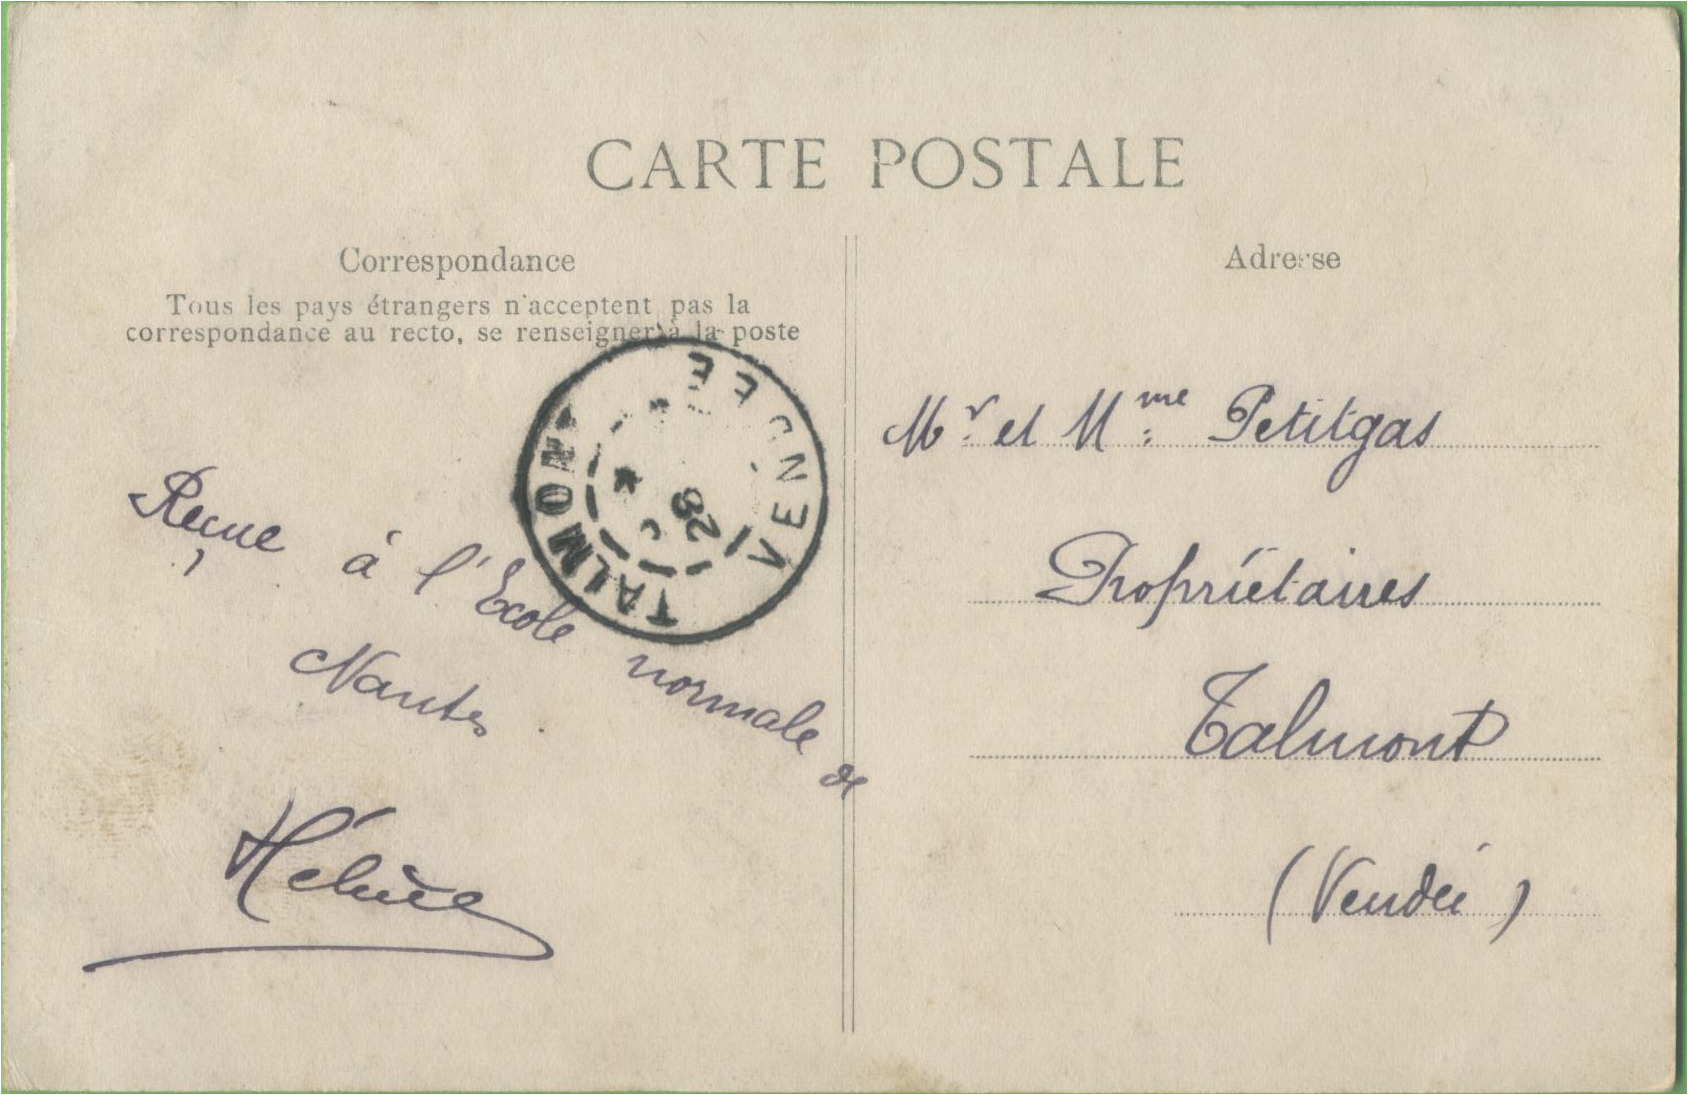 CARTE POSTALE
Correspondance
Tous les pays étrangers n'acceptent pas la
correspondance au recto, se renseigner à la poste
Reçue à l'Ecole normale de
Nantes.
Hélène
Adresse
Mr. et Mme: Petitgas
Propriétaires
Talmont
(Vendée)
TALMONT
VENDÉE
28